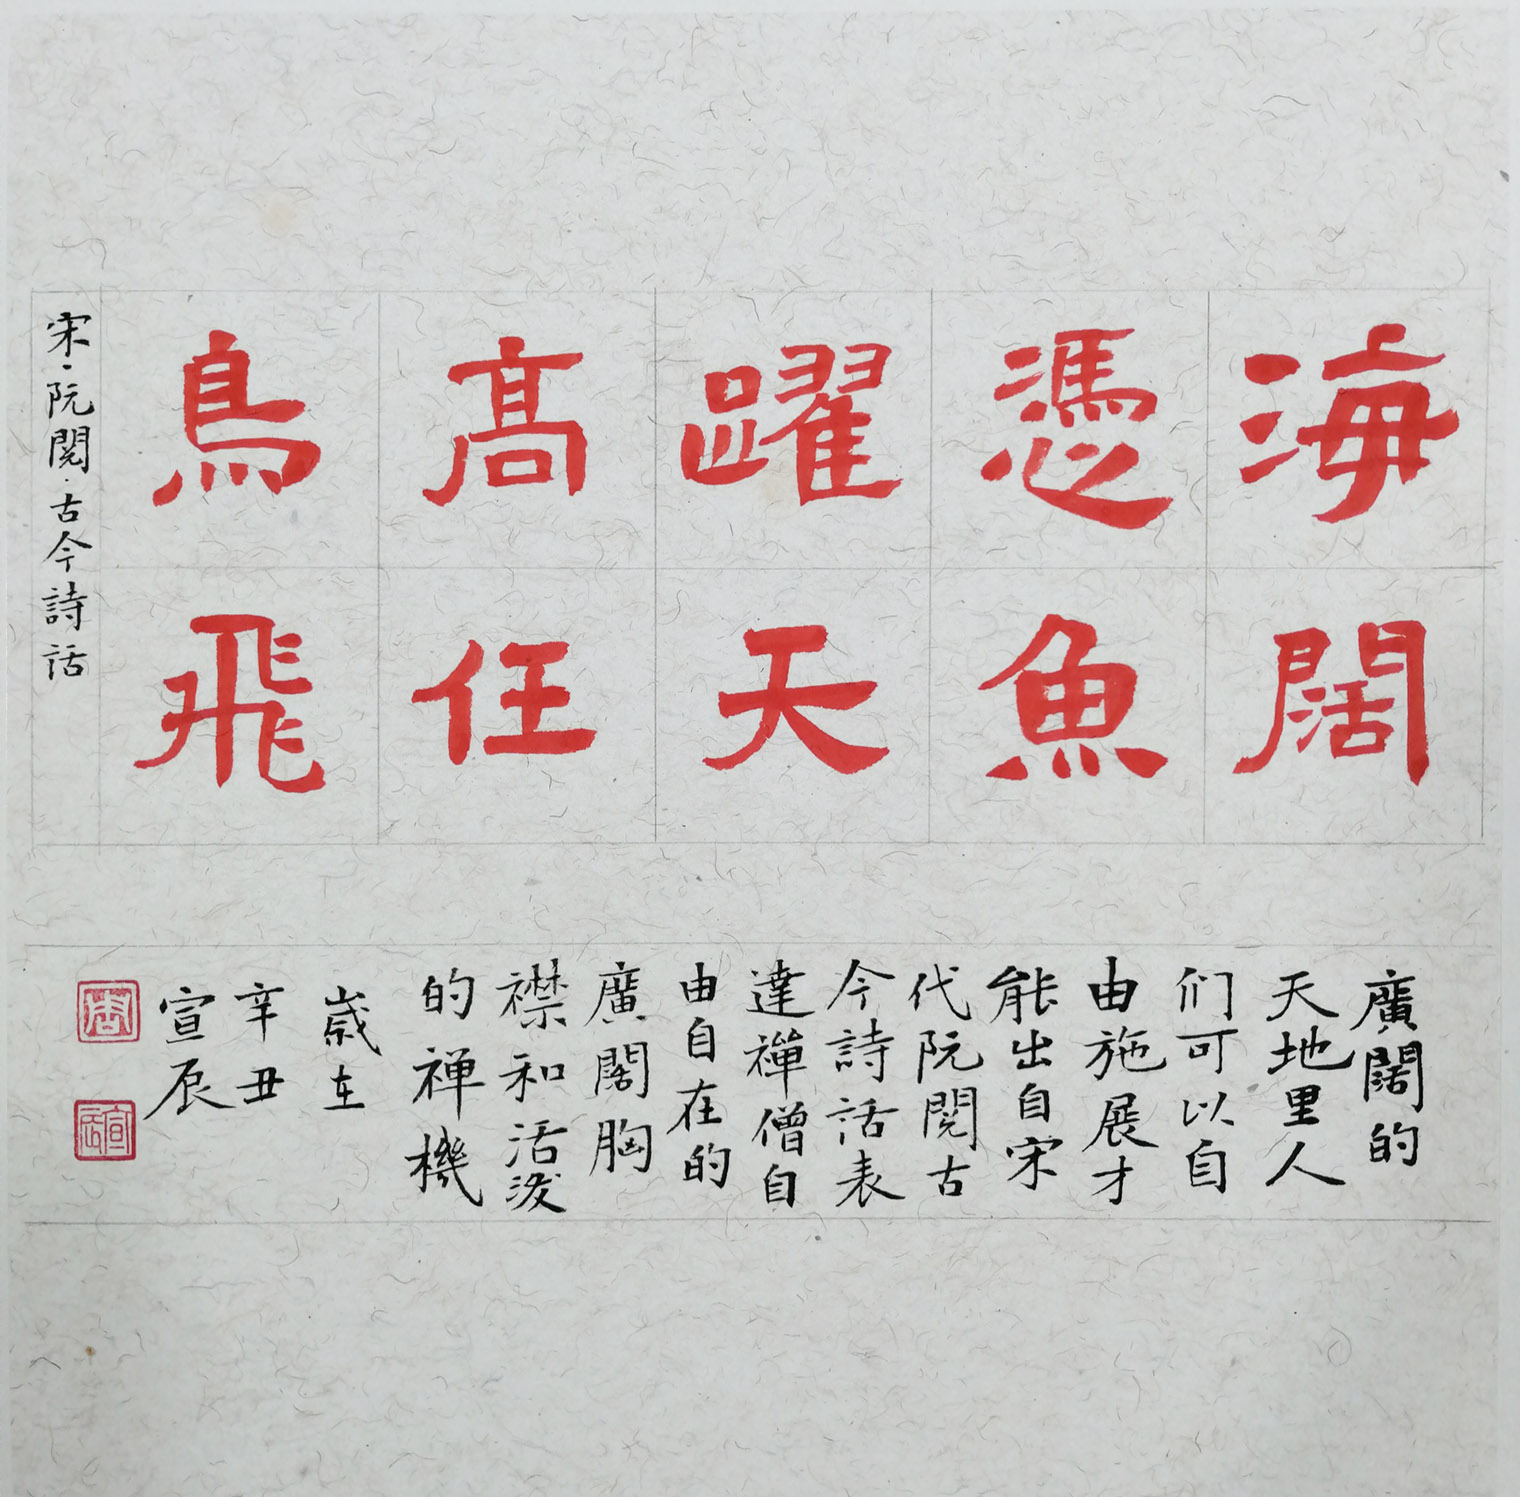 海闊
憑魚
躍天
高任
鳥飛
宋·阮閱·古今詩話
廣闊的
天地里人
们可以自
由施展才
能出自宋
代阮閱古
今詩話表
達禪僧自
由自在的
廣闊胸
襟和活泼
的禅機
歲在
辛丑
宣辰
唐
宣辰